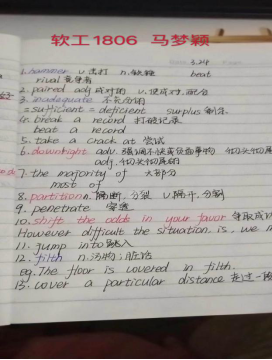 软工1806 马梦颖
3.24
1. hammer v.击打 n.铁锤 beat
rival 竞争者
2. paired adj.成对的 v.使成对,配合
3. inadequate 不充分的
= deficient surplus 剩余
4. break a record 打破记录
beat a record
5. take a crack at 尝试
6. downright adv.
adj.彻头彻尾的
7. the majority of 大部分
most of
8. partition n.隔断,分裂 v.隔开,分割
9. penetrate 穿透
10. shift the odds in your favor 争取成
However difficult the situation is, we
11. jump into 跳入
12. filth n.污物;脏话
eg. The floor is covered in filth.
13. cover a particular distance 走过一